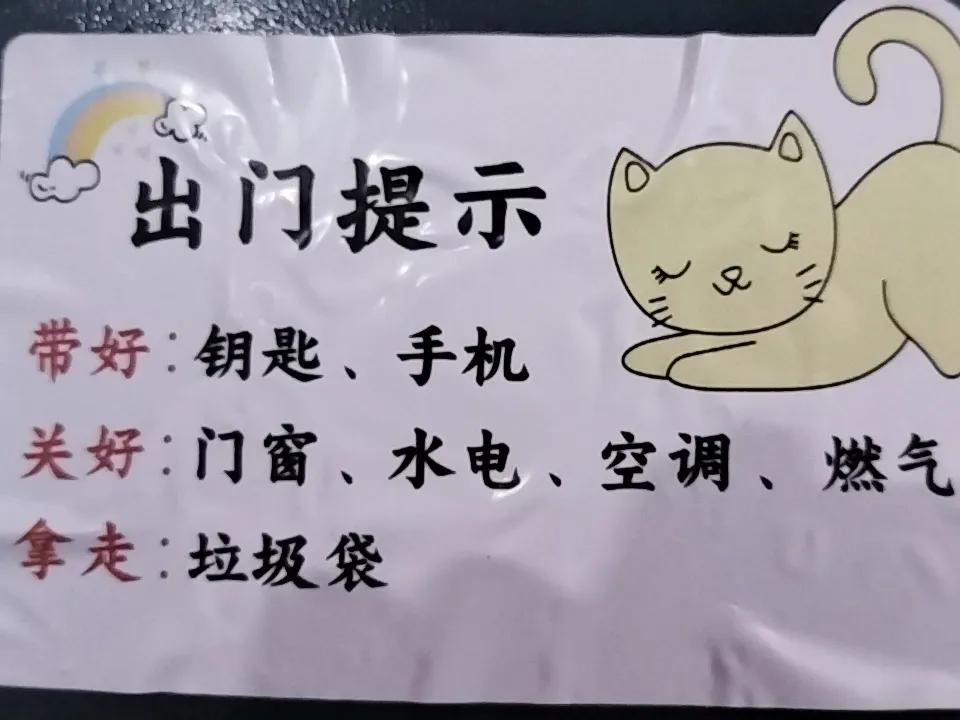 出门提示
带好:钥匙、手机
关好:门窗、水电、空调、燃气
拿走:垃圾袋